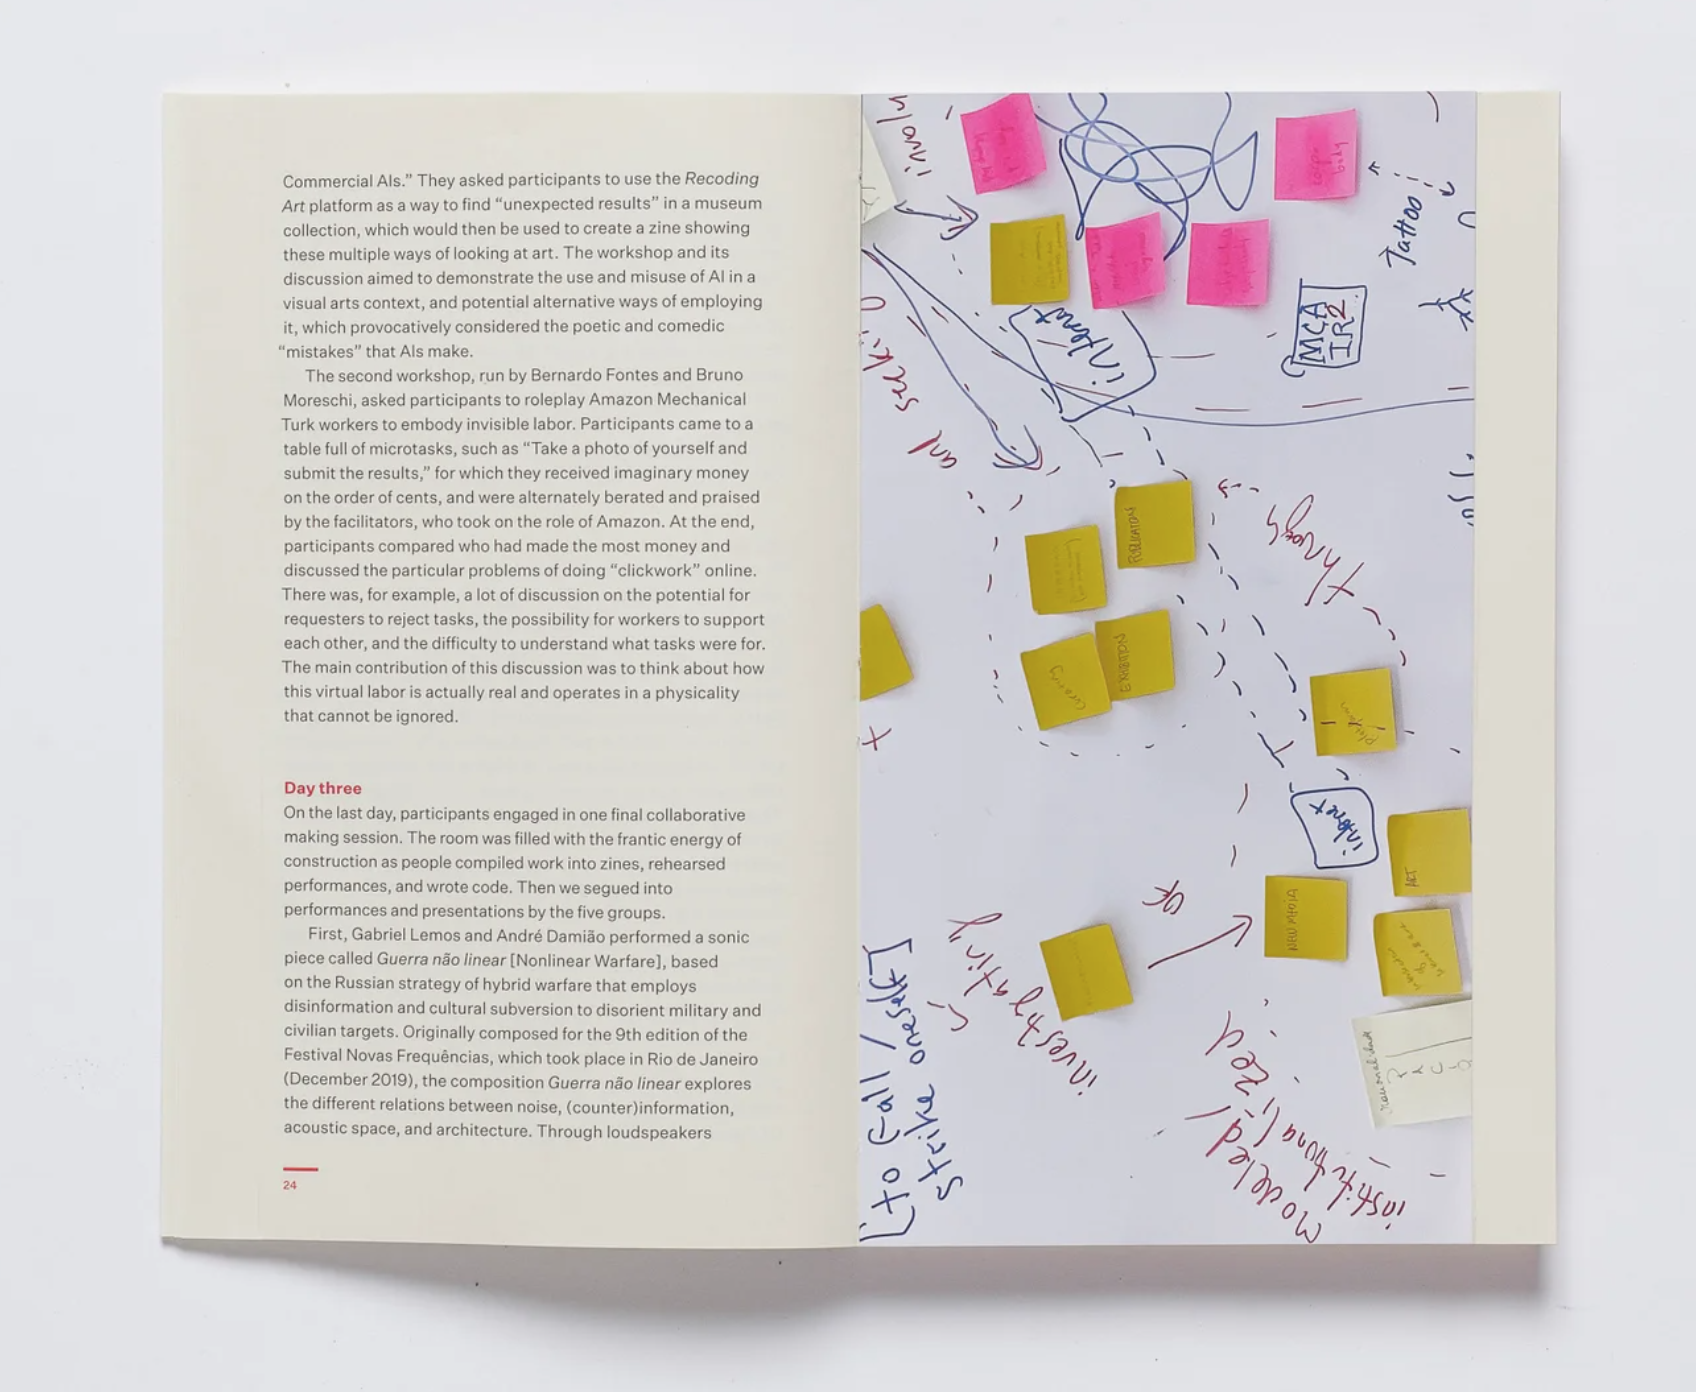 Commercial AIs.” They asked participants to use the Recoding
Art platform as a way to find “unexpected results” in a museum
collection, which would then be used to create a zine showing
these multiple ways of looking at art. The workshop and its
discussion aimed to demonstrate the use and misuse of AI in a
visual arts context, and potential alternative ways of employing
it, which provocatively considered the poetic and comedic
“mistakes” that AIs make.
The second workshop, run by Bernardo Fontes and Bruno
Moreschi, asked participants to roleplay Amazon Mechanical
Turk workers to embody invisible labor. Participants came to a
table full of microtasks, such as “Take a photo of yourself and
submit the results,” for which they received imaginary money
on the order of cents, and were alternately berated and praised
by the facilitators, who took on the role of Amazon. At the end,
participants compared who had made the most money and
discussed the particular problems of doing “clickwork” online.
There was, for example, a lot of discussion on the potential for
requesters to reject tasks, the possibility for workers to support
each other, and the difficulty to understand what tasks were for.
The main contribution of this discussion was to think about how
this virtual labor is actually real and operates in a physicality
that cannot be ignored.
Day three
On the last day, participants engaged in one final collaborative
making session. The room was filled with the frantic energy of
construction as people compiled work into zines, rehearsed
performances, and wrote code. Then we segued into
performances and presentations by the five groups.
First, Gabriel Lemos and André Damião performed a sonic
piece called Guerra não linear [Nonlinear Warfare], based
on the Russian strategy of hybrid warfare that employs
disinformation and cultural subversion to disorient military and
civilian targets. Originally composed for the 9th edition of the
Festival Novas Frequências, which took place in Rio de Janeiro
(December 2019), the composition Guerra não linear explores
the different relations between noise, (counter)information,
acoustic space, and architecture. Through loudspeakers
24
Tattoo
MCA
IR2
internet
and
through
PUBLICATION
EXHIBITION
internet
ART
NEW MEDIA
OK
investigating
[to fall /
strike oneself]
modeled /